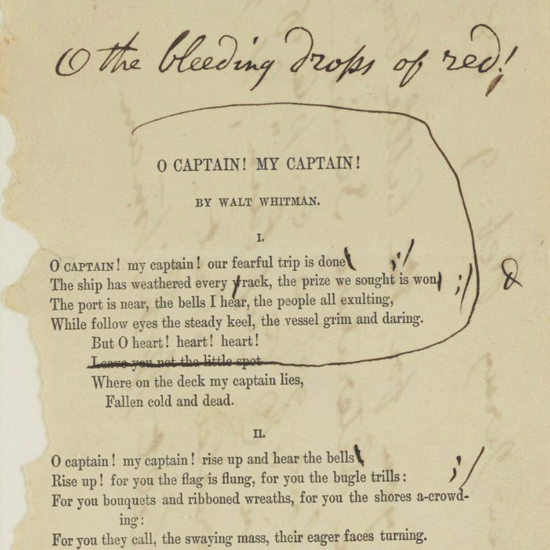 O the bleeding drops of red!
O CAPTAIN! MY CAPTAIN!
BY WALT WHITMAN.
I.
O CAPTAIN! my captain! our fearful trip is done, ;/
The ship has weathered every wrack, the prize we sought is won, ;/
The port is near, the bells I hear, the people all exulting,
While follow eyes the steady keel, the vessel grim and daring.
But O heart! heart! heart!
Leave you not the little spot
Where on the deck my captain lies,
Fallen cold and dead.
II.
O captain! my captain! rise up and hear the bells, ;/
Rise up! for you the flag is flung, for you the bugle trills:
For you bouquets and ribboned wreaths, for you the shores a-crowd-
ing:
For you they call, the swaying mass, their eager faces turning.